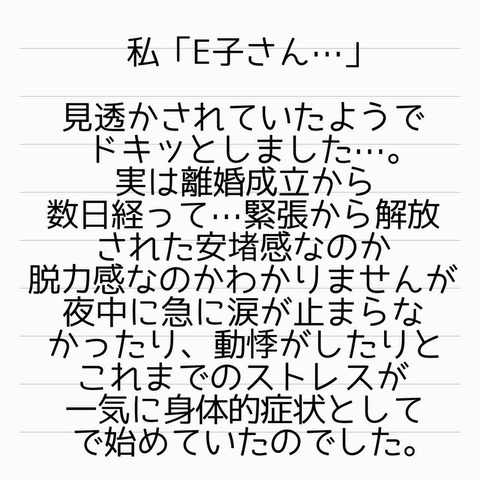 私「E子さん…」
見透かされていたようで
ドキッとしました…。
実は離婚成立から
数日経って…緊張から解放
された安堵感なのか
脱力感なのかわかりませんが
夜中に急に涙が止まらな
かったり、動悸がしたりと
これまでのストレスが
一気に身体的症状として
で始めていたのでした。